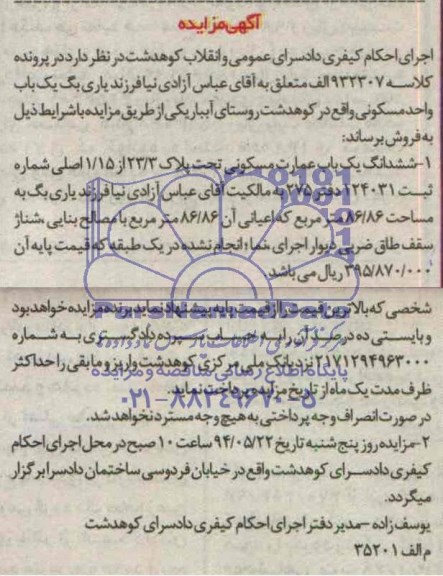 آگهی مزایده
اجرای احکام کیفری دادسرای عمومی و انقلاب کوهدشت در نظر دارد در پرونده
کلاسه ۹۳۲۳۰۷ الف متعلق به آقای عباس آزادی نیا فرزند یاری بگ یک باب
واحد مسکونی واقع در کوهدشت روستای آبباریکی از طریق مزایده با شرایط ذیل
به فروش برساند:
۱-ششدانگ یک باب عمارت مسکونی تحت پلاک ۲۳/۳ از ۱/۱۵ اصلی شماره
ثبت ۱۲۴۰۳۱ دفتر ۲۷۵ به مالکیت آقای عباس آزادی نیا فرزند یاری بگ به
مساحت ۸۶/۸۶ متر مربع که اعیانی آن ۸۶/۸۶ متر مربع با مصالح بنایی ،شناژ
سقف طاق ضربی دیوار اجرای ،نما؛ انجام نشده در یک طبقه که قیمت پایه آن
۳۹۵/۸۷۰/۰۰۰ ریال می باشد.
شخصی که بالاترین قیمت را از قیمت پایه پیشنهاد نماید برنده مزایده خواهد بود
و بایستی ده درصد آن را به حساب سپرده دادگستری به شماره
۲۱۷۱۲۹۴۹۶۳۰۰۰ نزد بانک ملی مرکزی کوهدشت واریز و مابقی را حداکثر
ظرف مدت یک ماه از تاریخ مزایده پرداخت نماید.
در صورت انصراف وجه پرداختی به هیچ وجه مسترد نخواهد شد.
۲-مزایده روز پنج شنبه تاریخ ۹۴/۰۵/۲۲ ساعت ۱۰ صبح در محل اجرای احکام
کیفری دادسرای کوهدشت واقع در خیابان فردوسی ساختمان دادسرا برگزار
میگردد.
یوسف زاده -مدیر دفتر اجرای احکام کیفری دادسرای کوهدشت
م الف ۳۵۲۰۱
پایگاه اطلاع رسانی مناقصه و مزایده
۰۲۱-۸۸۳۴۹۶۷۰-۵